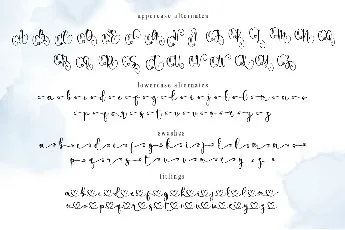 uppercase alternates
A B C D E F G H I J K L M N O
P Q R S T U V W X Y Z
lowercase alternates
a b c d e f g h i j k l m n o
p q r s t u v w x y z
swashes
a b c d e f g h i j k l m n o
p q r s t u v w x y z
titlings
a b c d e f g h i j k l m
n o p q r s t u v w x y z